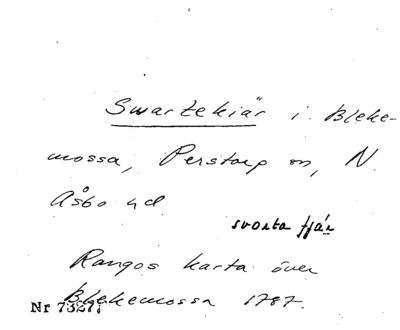 Swartekiär i Bleke-
mossa, Perstorp sn, N.
Åsbo hd.
svarta tjär
Rangos karta över
Blekemossa 1787.
Nr 73277